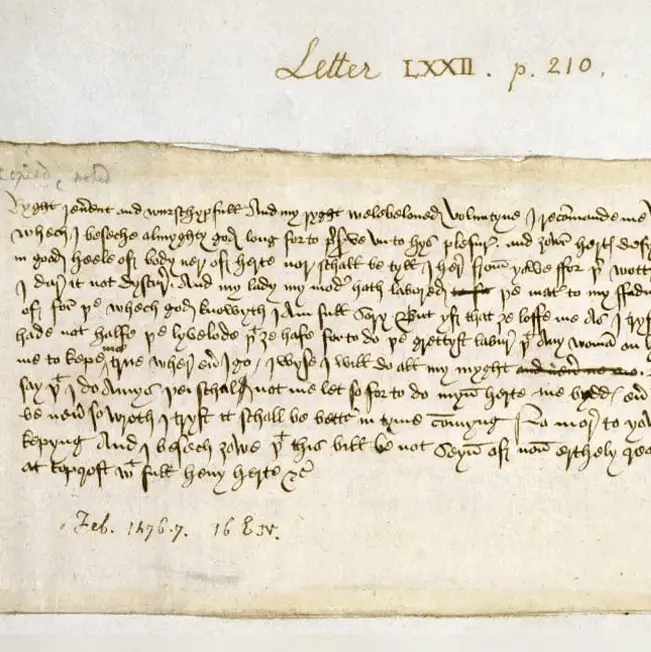 Letter LXXII. p. 210.
copied,
Ryght reuerent and wurschypfull And my ryght welebeloued Voluntyne I recommande me
whech I beseche almyghty god long for to preserve vn to hys plesur and ȝowr hertes desy
in good heele of body ner of herte nor schall be tyll I her from ȝowe ffor þer wott
I dar it not dyscur. And my lady my moder hath labored þe mater to my ffadur
of for þe whech god knowyth I Am full sory But yf that ȝe loffe me As I tryst
hade not halfe þe lyvelode þat ȝe hafe for to do þe grettyst labur þat Any woman on ly
me to kepe me true wher euer I go I wyse I will do all my myght
say þat I do Amys þei schal not me let so for to do myn herte me bydds euer
be neuer so wroth I tryst it schall be better in tyme commyng No mor to yow
kepyng And I besech ȝowe þat this bill be not seyn of non erthely crea
at Topcroft wt full heuy herte &c
Feb. 1476.7. 16 E IV.